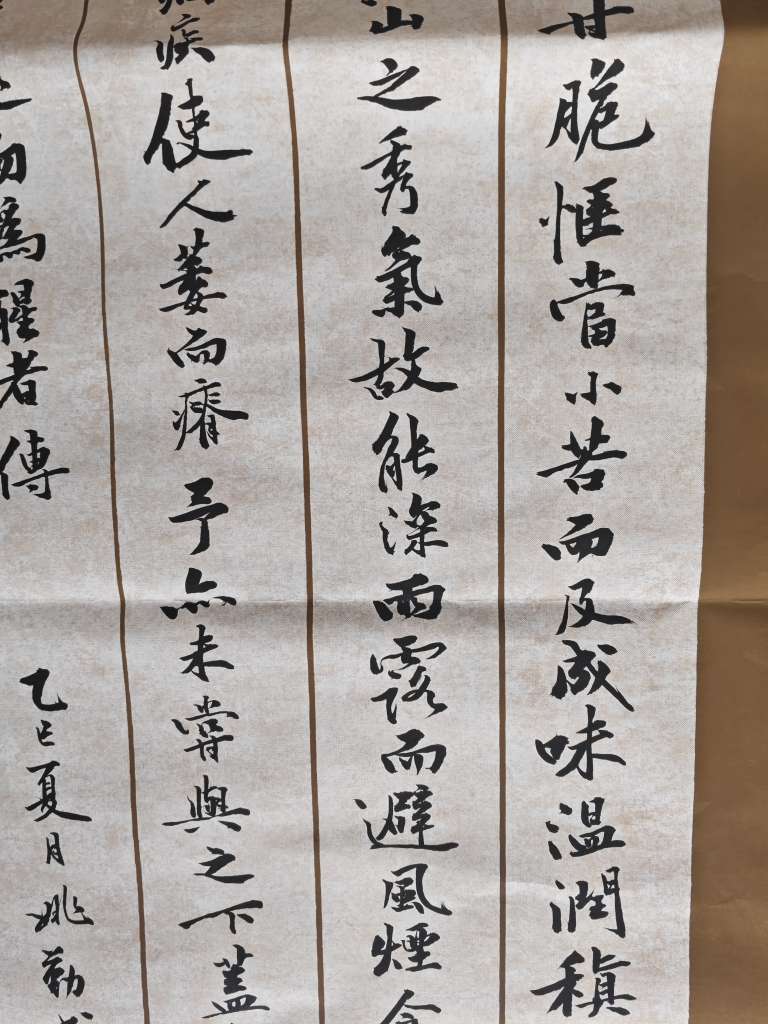 甘脆惟當小苦而反成味温潤稹
山之秀氣故能深雨露而避風煙
疾使人萎而瘠予亦未嘗與之下蓋
勿為醒者傳
乙巳夏月姚勤